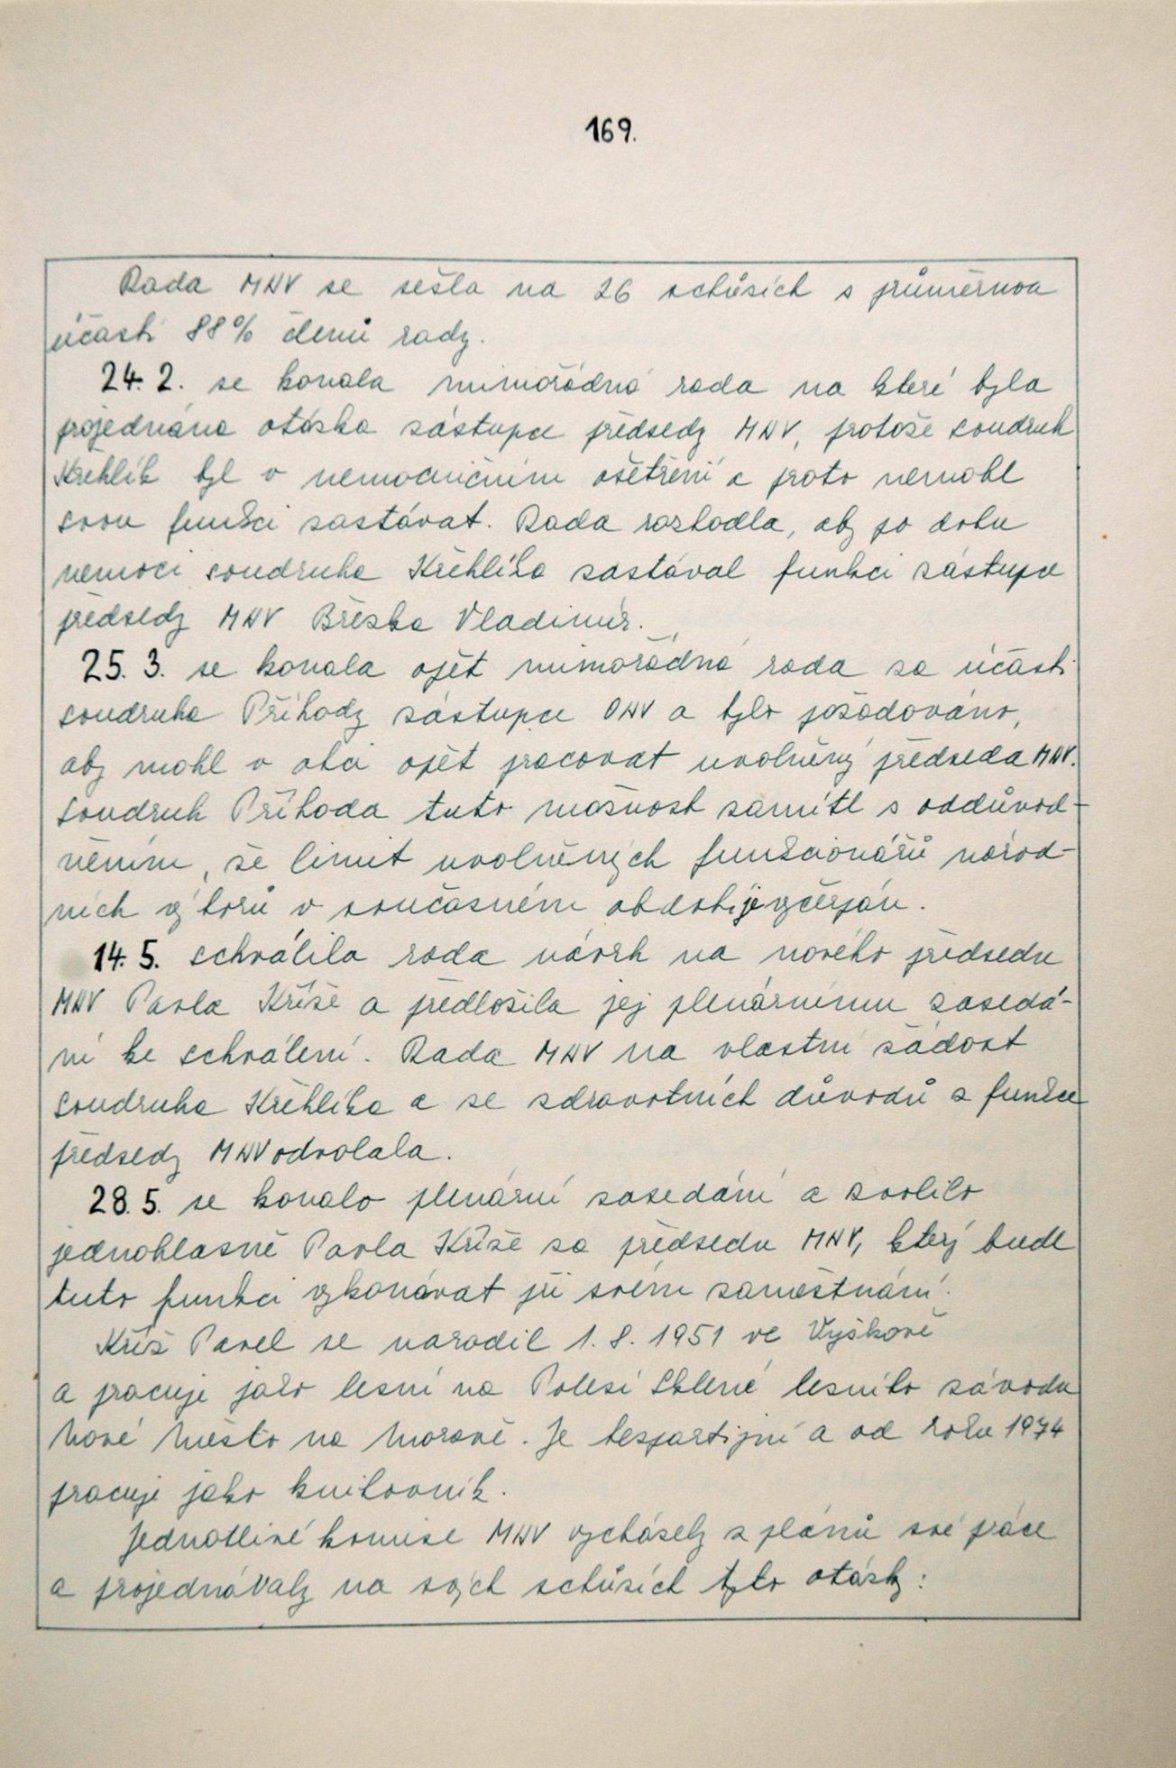 169.
Rada MNV se sešla na 26 schůzích s průměrnou
účastí 88% členů rady.
24. 2. se konala mimořádná rada na které byla
projednána otázka zástupce předsedy MNV, protože soudruh
Křehlík byl v nemocničním ošetření a proto nemohl
svou funkci zastávat. Rada rozhodla, aby po dobu
nemoci soudruha Křehlíka zastával funkci zástupce
předsedy MNV Březka Vladimír.
25. 3. se konala opět mimořádná rada za účasti
soudruha Příhody zástupce ONV a bylo požadováno,
aby mohl v obci opět pracovat uvolněný předseda MNV.
Soudruh Příhoda tuto možnost zamítl s odůvod-
něním, že limit uvolněných funkcionářů národ-
ních výborů v současném období je vyčerpán.
14. 5. schválila rada návrh na nového předsedu
MNV Pavla Kříže a předložila jej plenárnímu zasedá-
ní ke schválení. Rada MNV na vlastní žádost
soudruha Křehlíka a ze zdravotních důvodů z funkce
předsedy MNV odvolala.
28. 5. se konalo plenární zasedání a zvolilo
jednohlasně Pavla Kříže za předsedu MNV, který bude
tuto funkci vykonávat při svém zaměstnání.
Kříž Pavel se narodil 1. 8. 1951 ve Vyškově
a pracuje jako lesní na Polesí Sklené lesního závodu
Nové Město na Moravě. Je bezpartijní a od roku 1974
pracuje jako knihovník.
Jednotlivé komise MNV vycházely z plánů své práce
a projednávaly na svých schůzích tyto otázky: